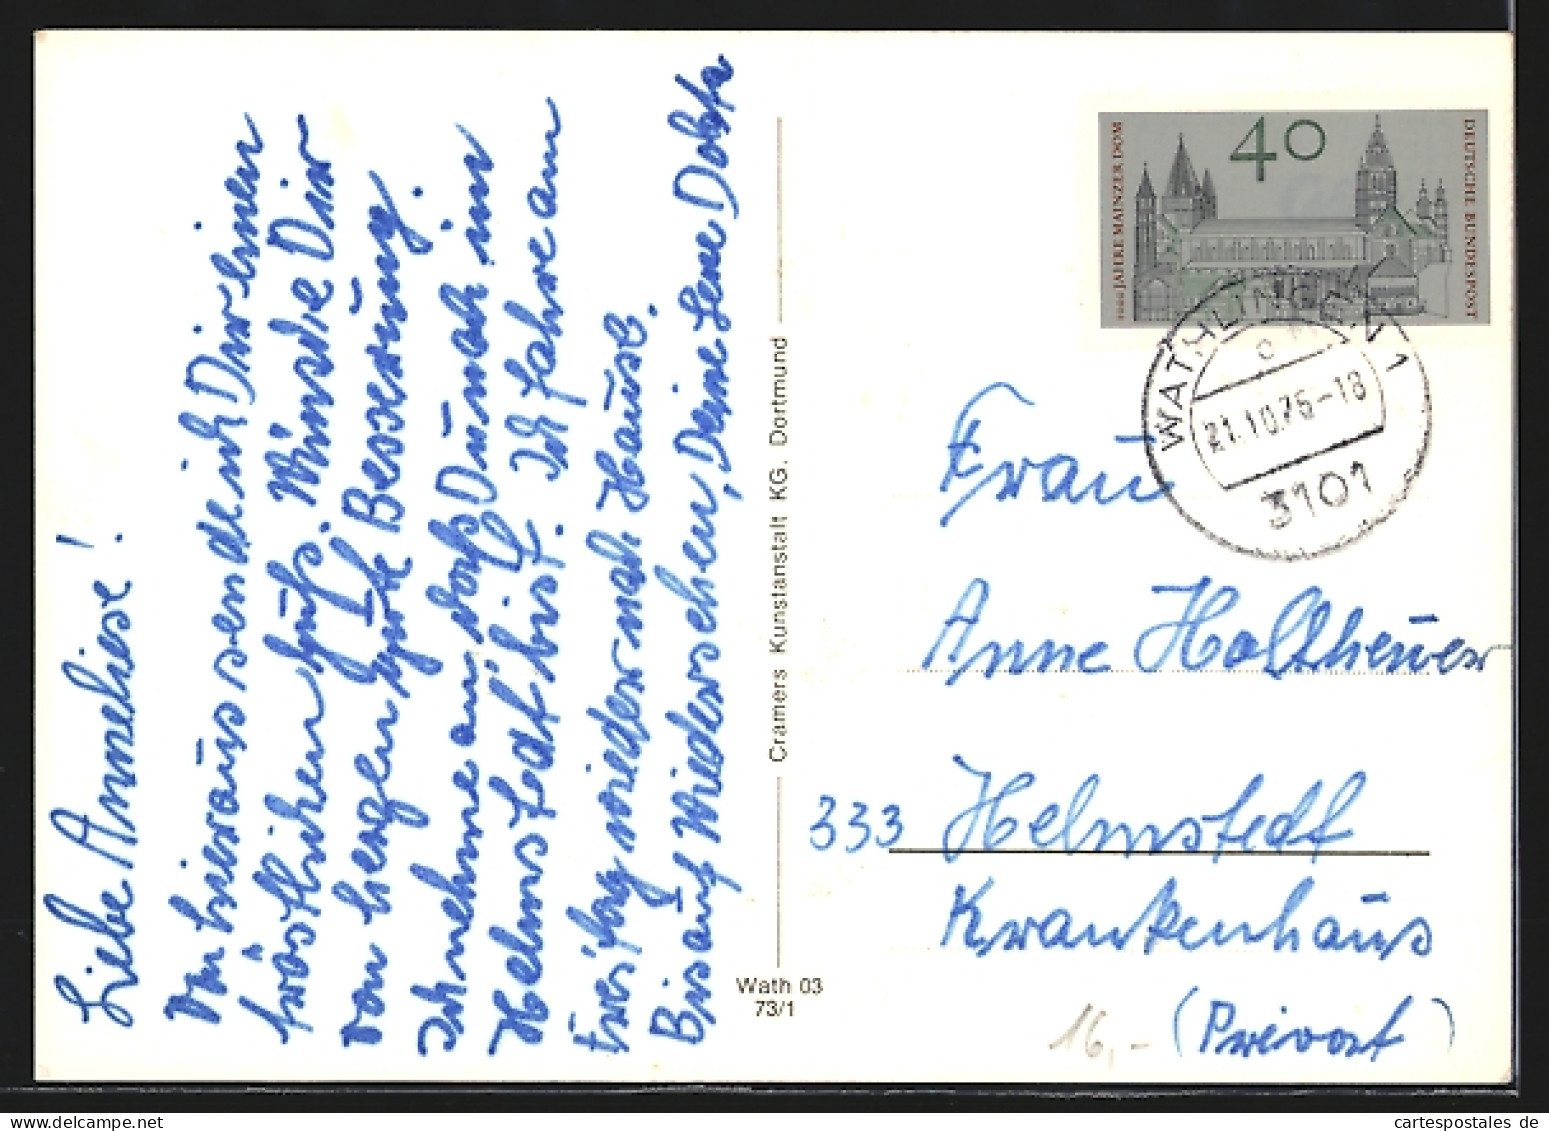 Liebe Anneliese!
Von hieraus sende ich Dir einen
tröstlichen Gruß. Wünsche Dir
von herzen gute Besserung.
Ich nehme an das Du noch in
Helmstedt bist. Ich fahre am
Freitag wieder nach Hause.
Bis auf Wiedersehen, Deine Lene
Cramers Kunstanstalt KG. Dortmund
Wath 03
73/1
1000 JAHRE MAINZER DOM
40
DEUTSCHE BUNDESPOST
WATHLINGEN 1
21.10.76-18
3101
Frau
Anne Holzheuer
333 Helmstedt
Krankenhaus
(Privost)
16,-
cartespostales de